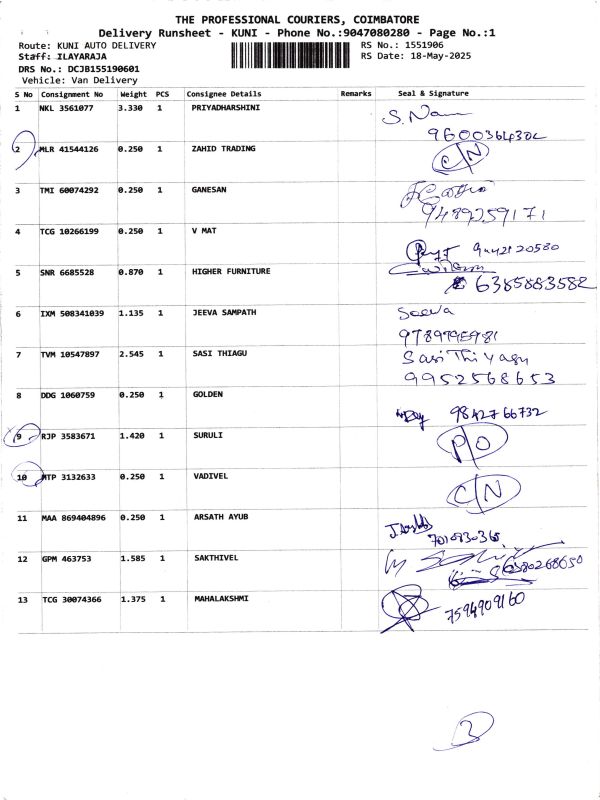 THE PROFESSIONAL COURIERS, COIMBATORE
Delivery Runsheet - KUNI - Phone No.:9047080280 - Page No.:1
Route: KUNI AUTO DELIVERY RS No.: 1551906
Staff: ILAYARAJA RS Date: 18-May-2025
DRS No.: DCJB155190601
Vehicle: Van Delivery
S No Consignment No Weight PCS Consignee Details Remarks Seal & Signature
1 NKL 3561077 3.330 1 PRIYADHARSHINI S. Nam
9600364302
2 MLR 41544126 0.250 1 ZAHID TRADING C/N
3 TMI 60074292 0.250 1 GANESAN
9489259171
4 TCG 10266199 0.250 1 V MAT
5 SNR 6685528 0.870 1 HIGHER FURNITURE
6385883582
6 IXM 508341039 1.135 1 JEEVA SAMPATH Jeeva
7 TVM 10547897 2.545 1 SASI THIAGU Sasi Thiyagu
9952568653
8 DDG 1060759 0.250 1 GOLDEN
9842766732
9 RJP 3583671 1.420 1 SURULI P/O
10 MTP 3132633 0.250 1 VADIVEL C/N
11 MAA 869404896 0.250 1 ARSATH AYUB
12 GPM 463753 1.585 1 SAKTHIVEL
6380268650
13 TCG 30074366 1.375 1 MAHALAKSHMI
7594909160
3